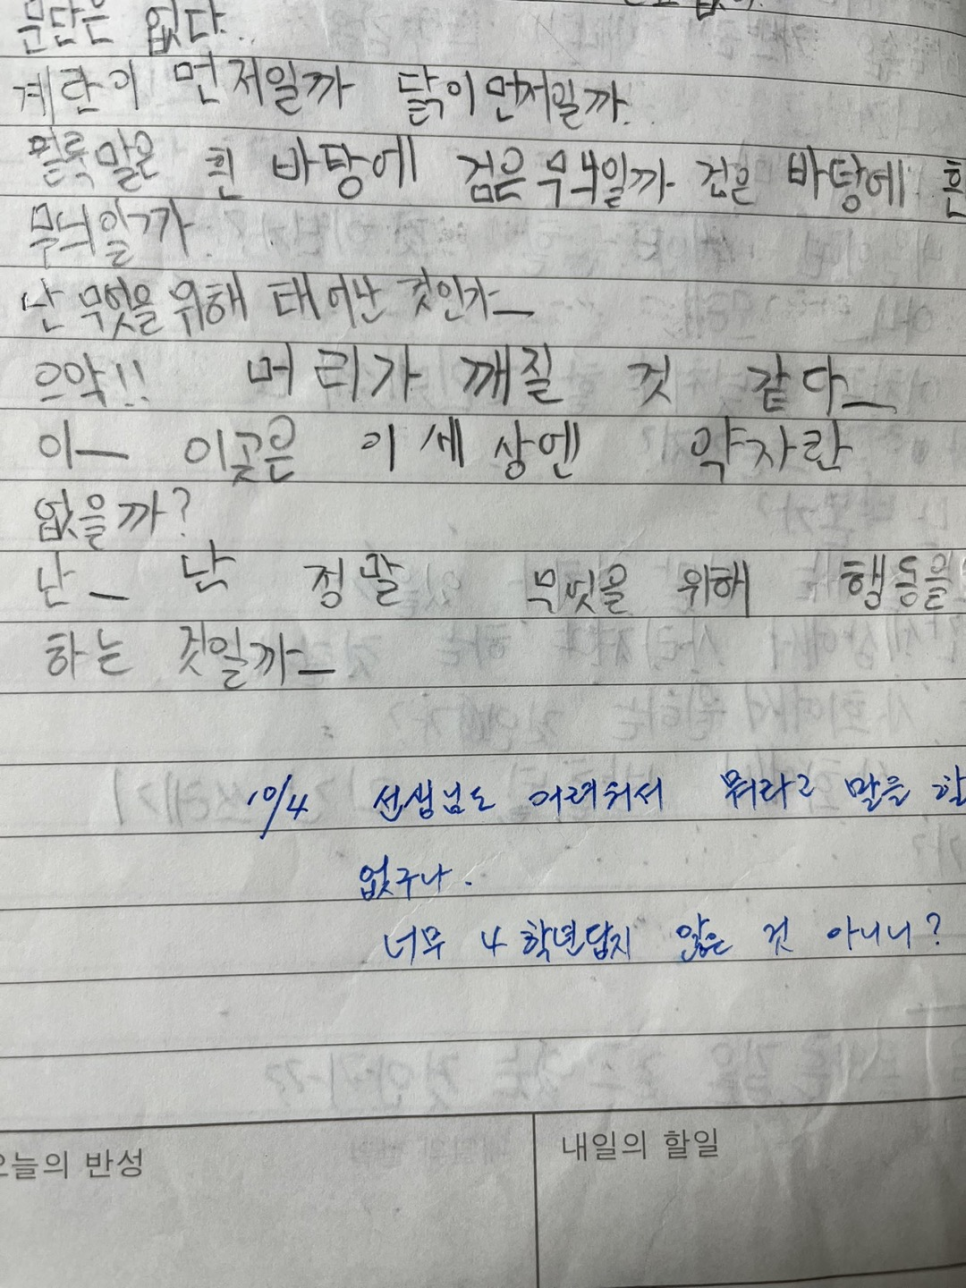 문단은 없다..
계란이 먼저일까 닭이먼저일까.
얼룩말은 흰 바탕에 검은무늬일까 검은 바탕에 흰
무늬일까.
난 무엇을 위해 태어난 것인가ㅡ
으악!! 머리가 깨질 것 같다ㅡ
아ㅡ 이곳은 이 세상엔 약자란
없을까?
난ㅡ 난 정말 무엇을 위해 행동을
하는 것일까ㅡ
10/4 선생님도 어려워서 뭐라고 말을 할
없구나.
너무 4학년답지 않은 것 아니니?
오늘의 반성
내일의 할일